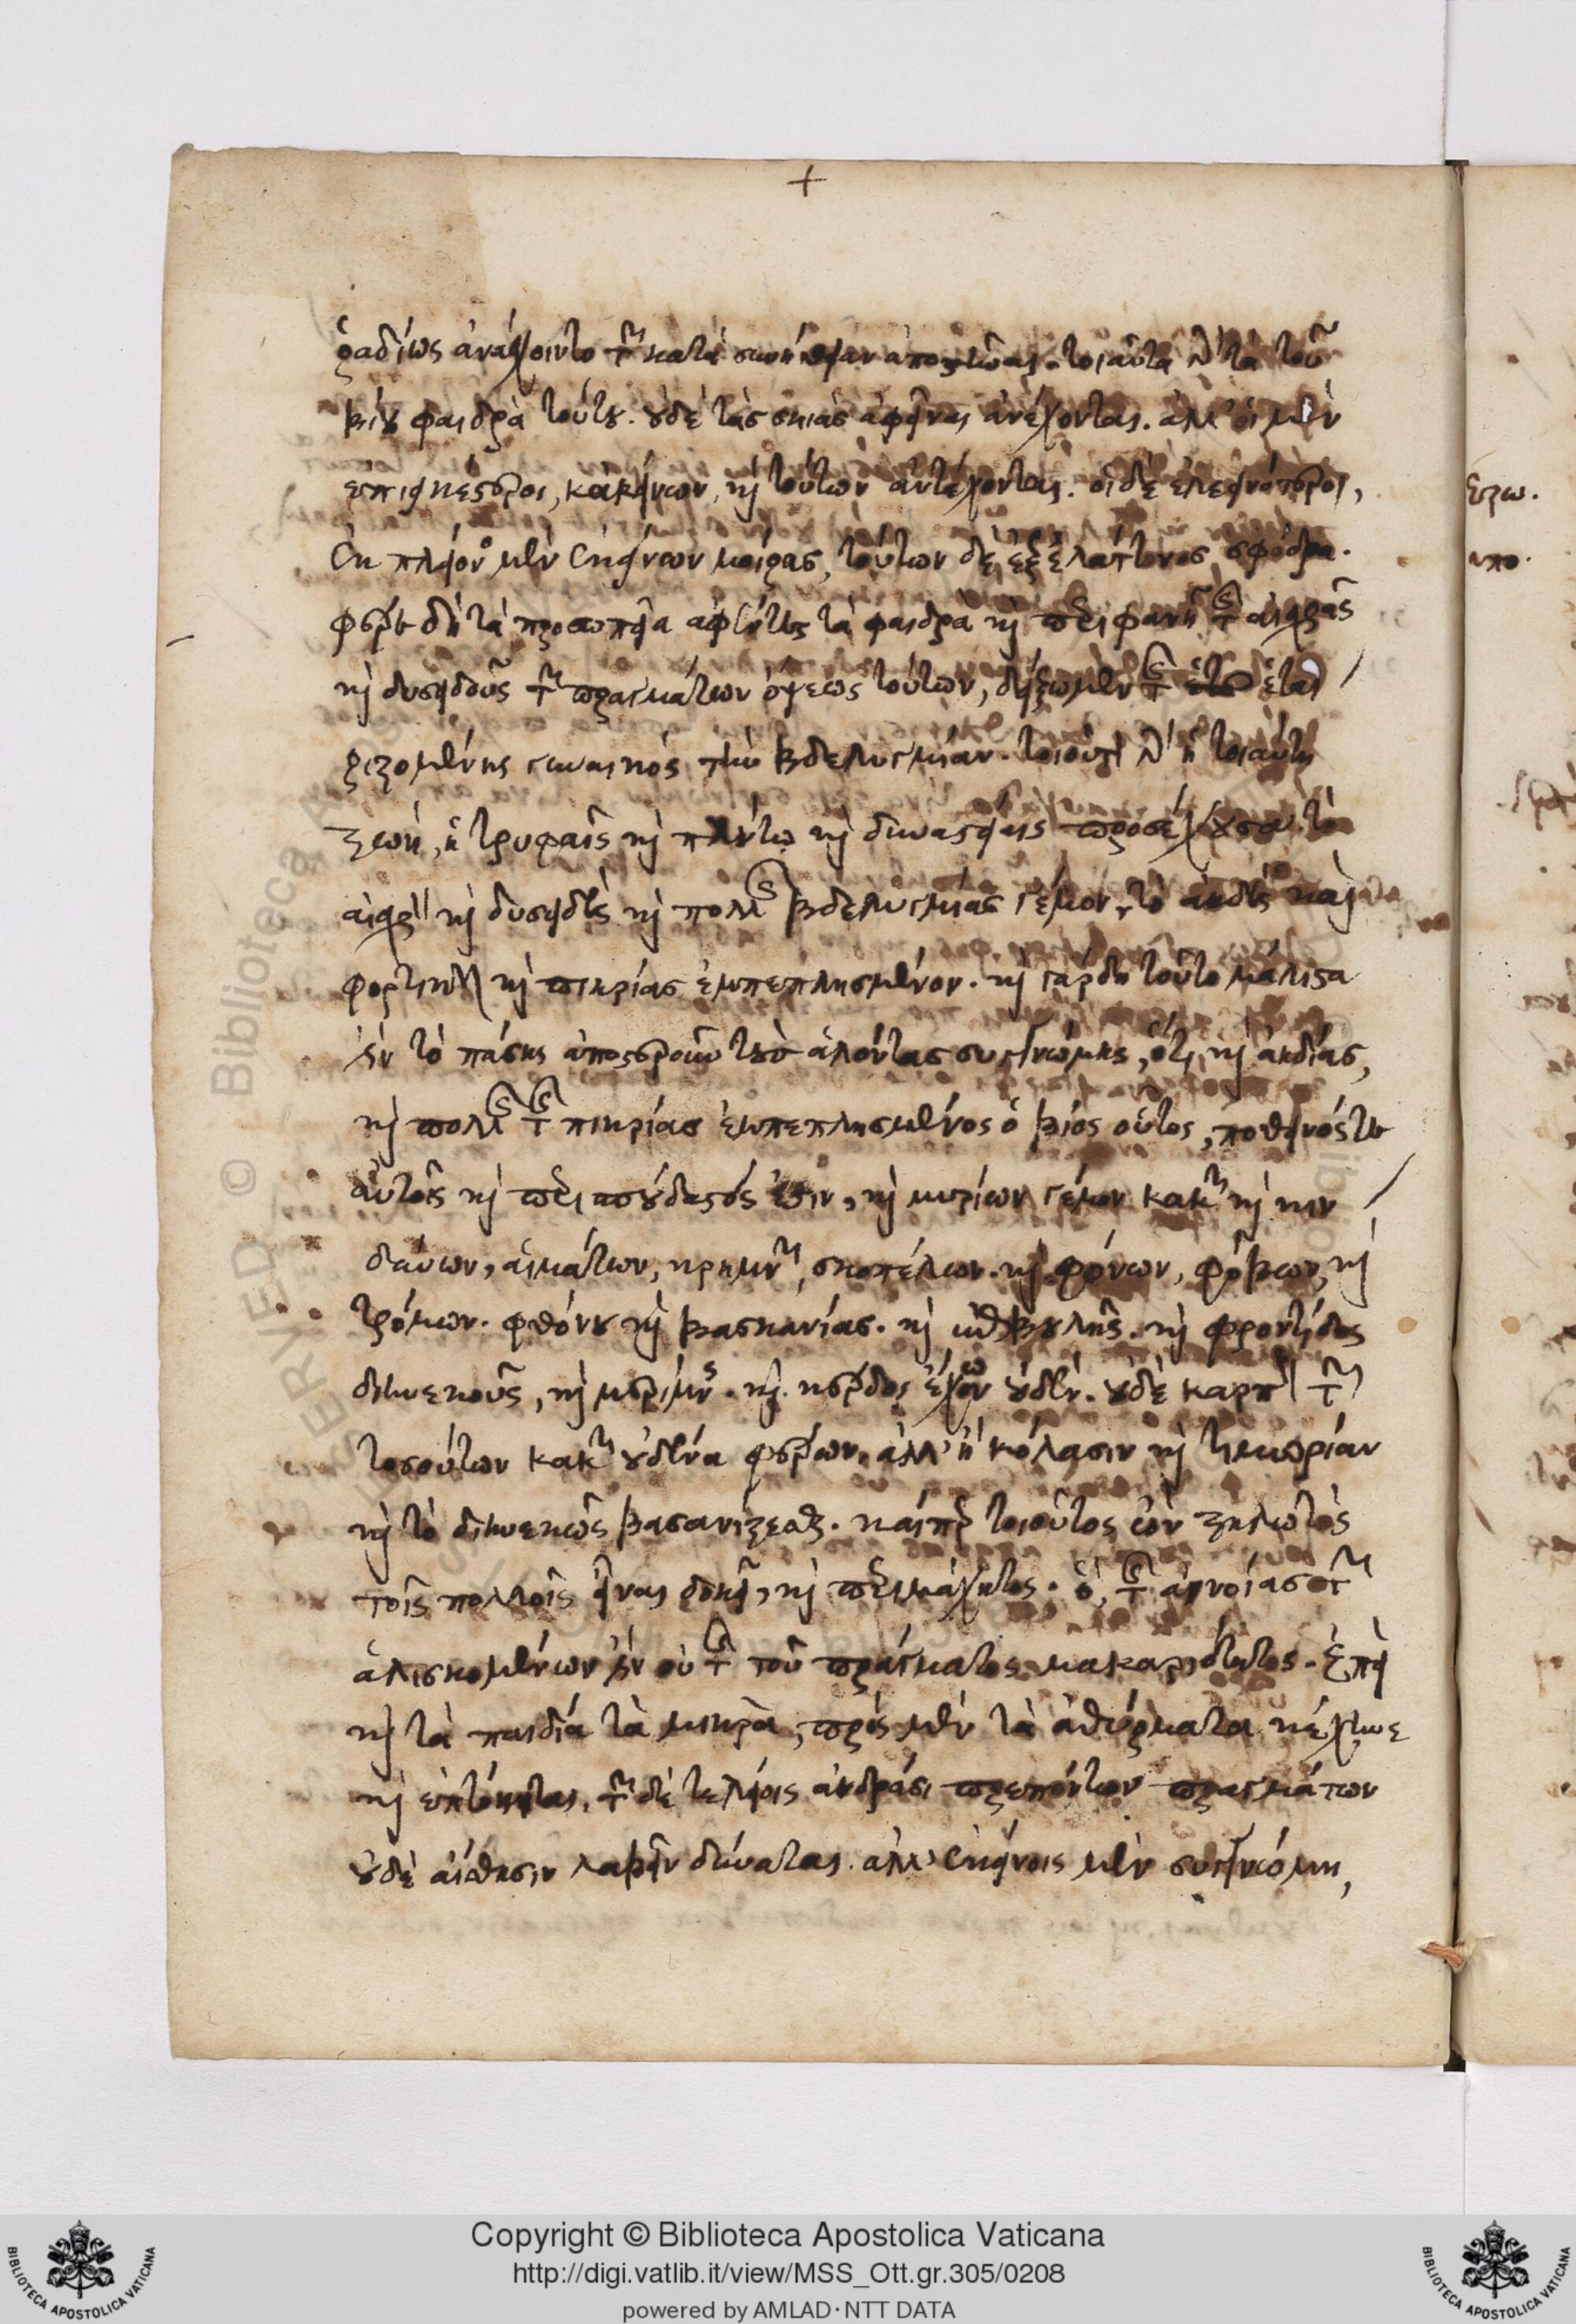 +
ῥαδίως ἀνάσχοιντο τῶν κατὰ συνήθειαν ἀποστῶναι. τοιαῦτα γὰρ τὰ τοῦ
βίου φαιδρὰ τούτου. οὐδὲ τὰς σκιὰς ἀφεῖναι ἀνέχονται. ἀλλ' οἱ μὲν
ἐπιεικέστεροι, κακείνων, καὶ τούτων ἀντέχονται. οἱ δὲ ἐλεεινότεροι,
ἐκ πλείονος μὲν ἐκείνων μοίρας, τούτων δὲ ἐξ ἐλάττονος σφόδρα.
φέρε δὴ τὰ προσωπεῖα ἀφέντες τὰ φαιδρὰ καὶ περιφανῆ τῆς αἰσχρᾶς
καὶ δυσειδοῦς τῶν πραγμάτων ὄψεως τούτων, δείξωμεν τῆς ἑται
ριζομένης γυναικός τὴν βδελυγμίαν. τοιοῦτον γὰρ ἡ τοιαύτη
ζωή, ἡ τρυφαῖς καὶ πλούτω καὶ δυναστείαις προσέχουσα. τὸ
αἰσχρὸν καὶ δυσειδὲς καὶ πολλῆς βδελυγμίας γέμον, τὸ ἀηδὲς καὶ
φορτικὸν καὶ πικρίας ἐμπεπλησμένον. καὶ γὰρ δὴ τοῦτο μάλιστα
ἐν τὸ πάσης ἀποστεροῦν τοὺς ἁλόντας συγγνώμης, ὅτι καὶ ἀηδίας,
καὶ πολλῆς τῆς πικρίας ἐμπεπλησμένος ὁ βίος οὗτος, ποθεινός τε
αὐτοῖς καὶ περισπούδαστός ἐστιν, καὶ μυρίων γέμων κακῶν καὶ κιν
δύνων, αἱμάτων, κρημνῶν, σκοπέλων. καὶ φόνων, φόβων, καὶ
τρόμων. φθόνου καὶ βασκανίας. καὶ ἐπιβουλῆς. καὶ φροντίδος
διηνεκοῦς, καὶ μερίμνης. καὶ κέρδος ἔχων οὐδέν. οὐδὲ καρπὸν τῶν
τοσούτων κακῶν οὐδένα φέρων, ἀλλ' ἢ κόλασιν καὶ τιμωρίαν
καὶ τὸ διηνεκῶς βασανίζεσθαι. καίπερ τοιοῦτος ὢν ζηλωτὸς
τοῖς πολλοῖς εἶναι δοκεῖ, καὶ περιμάχητος. ὃ, τῆς ἀγνοίας τῶν
ἁλισκομένων ἐν οὐ τῆς τοῦ πράγματος μακαριότητος. ἐπεὶ
καὶ τὰ παιδία τὰ μικρὰ, πρὸς μὲν τὰ ἀθύρματα κέχηνε
καὶ ἐπτόηται, τῶν δὲ τελείοις ἀνδράσι πρεπόντων πραγμάτων
οὐδὲ αἴσθησιν λαβεῖν δύναται. ἀλλ' ἐκείνοις μὲν συγγνώμη,
Copyright © Biblioteca Apostolica Vaticana
http://digi.vatlib.it/view/MSS_Ott.gr.305/0208
powered by AMLAD·NTT DATA
BIBLIOTECA APOSTOLICA VATICANA
BIBLIOTECA APOSTOLICA VATICANA